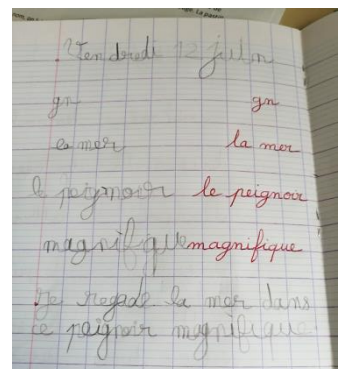 Vendredi 12 juin
gn gn
la mer la mer
le peignoir le peignoir
magnifique magnifique
je regade la mer dans
ce peignoir magnifique